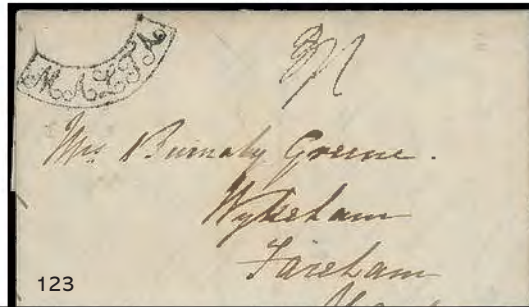 MALTA
Mrs Burnaby Greene.
Wykeham
Fareham
123